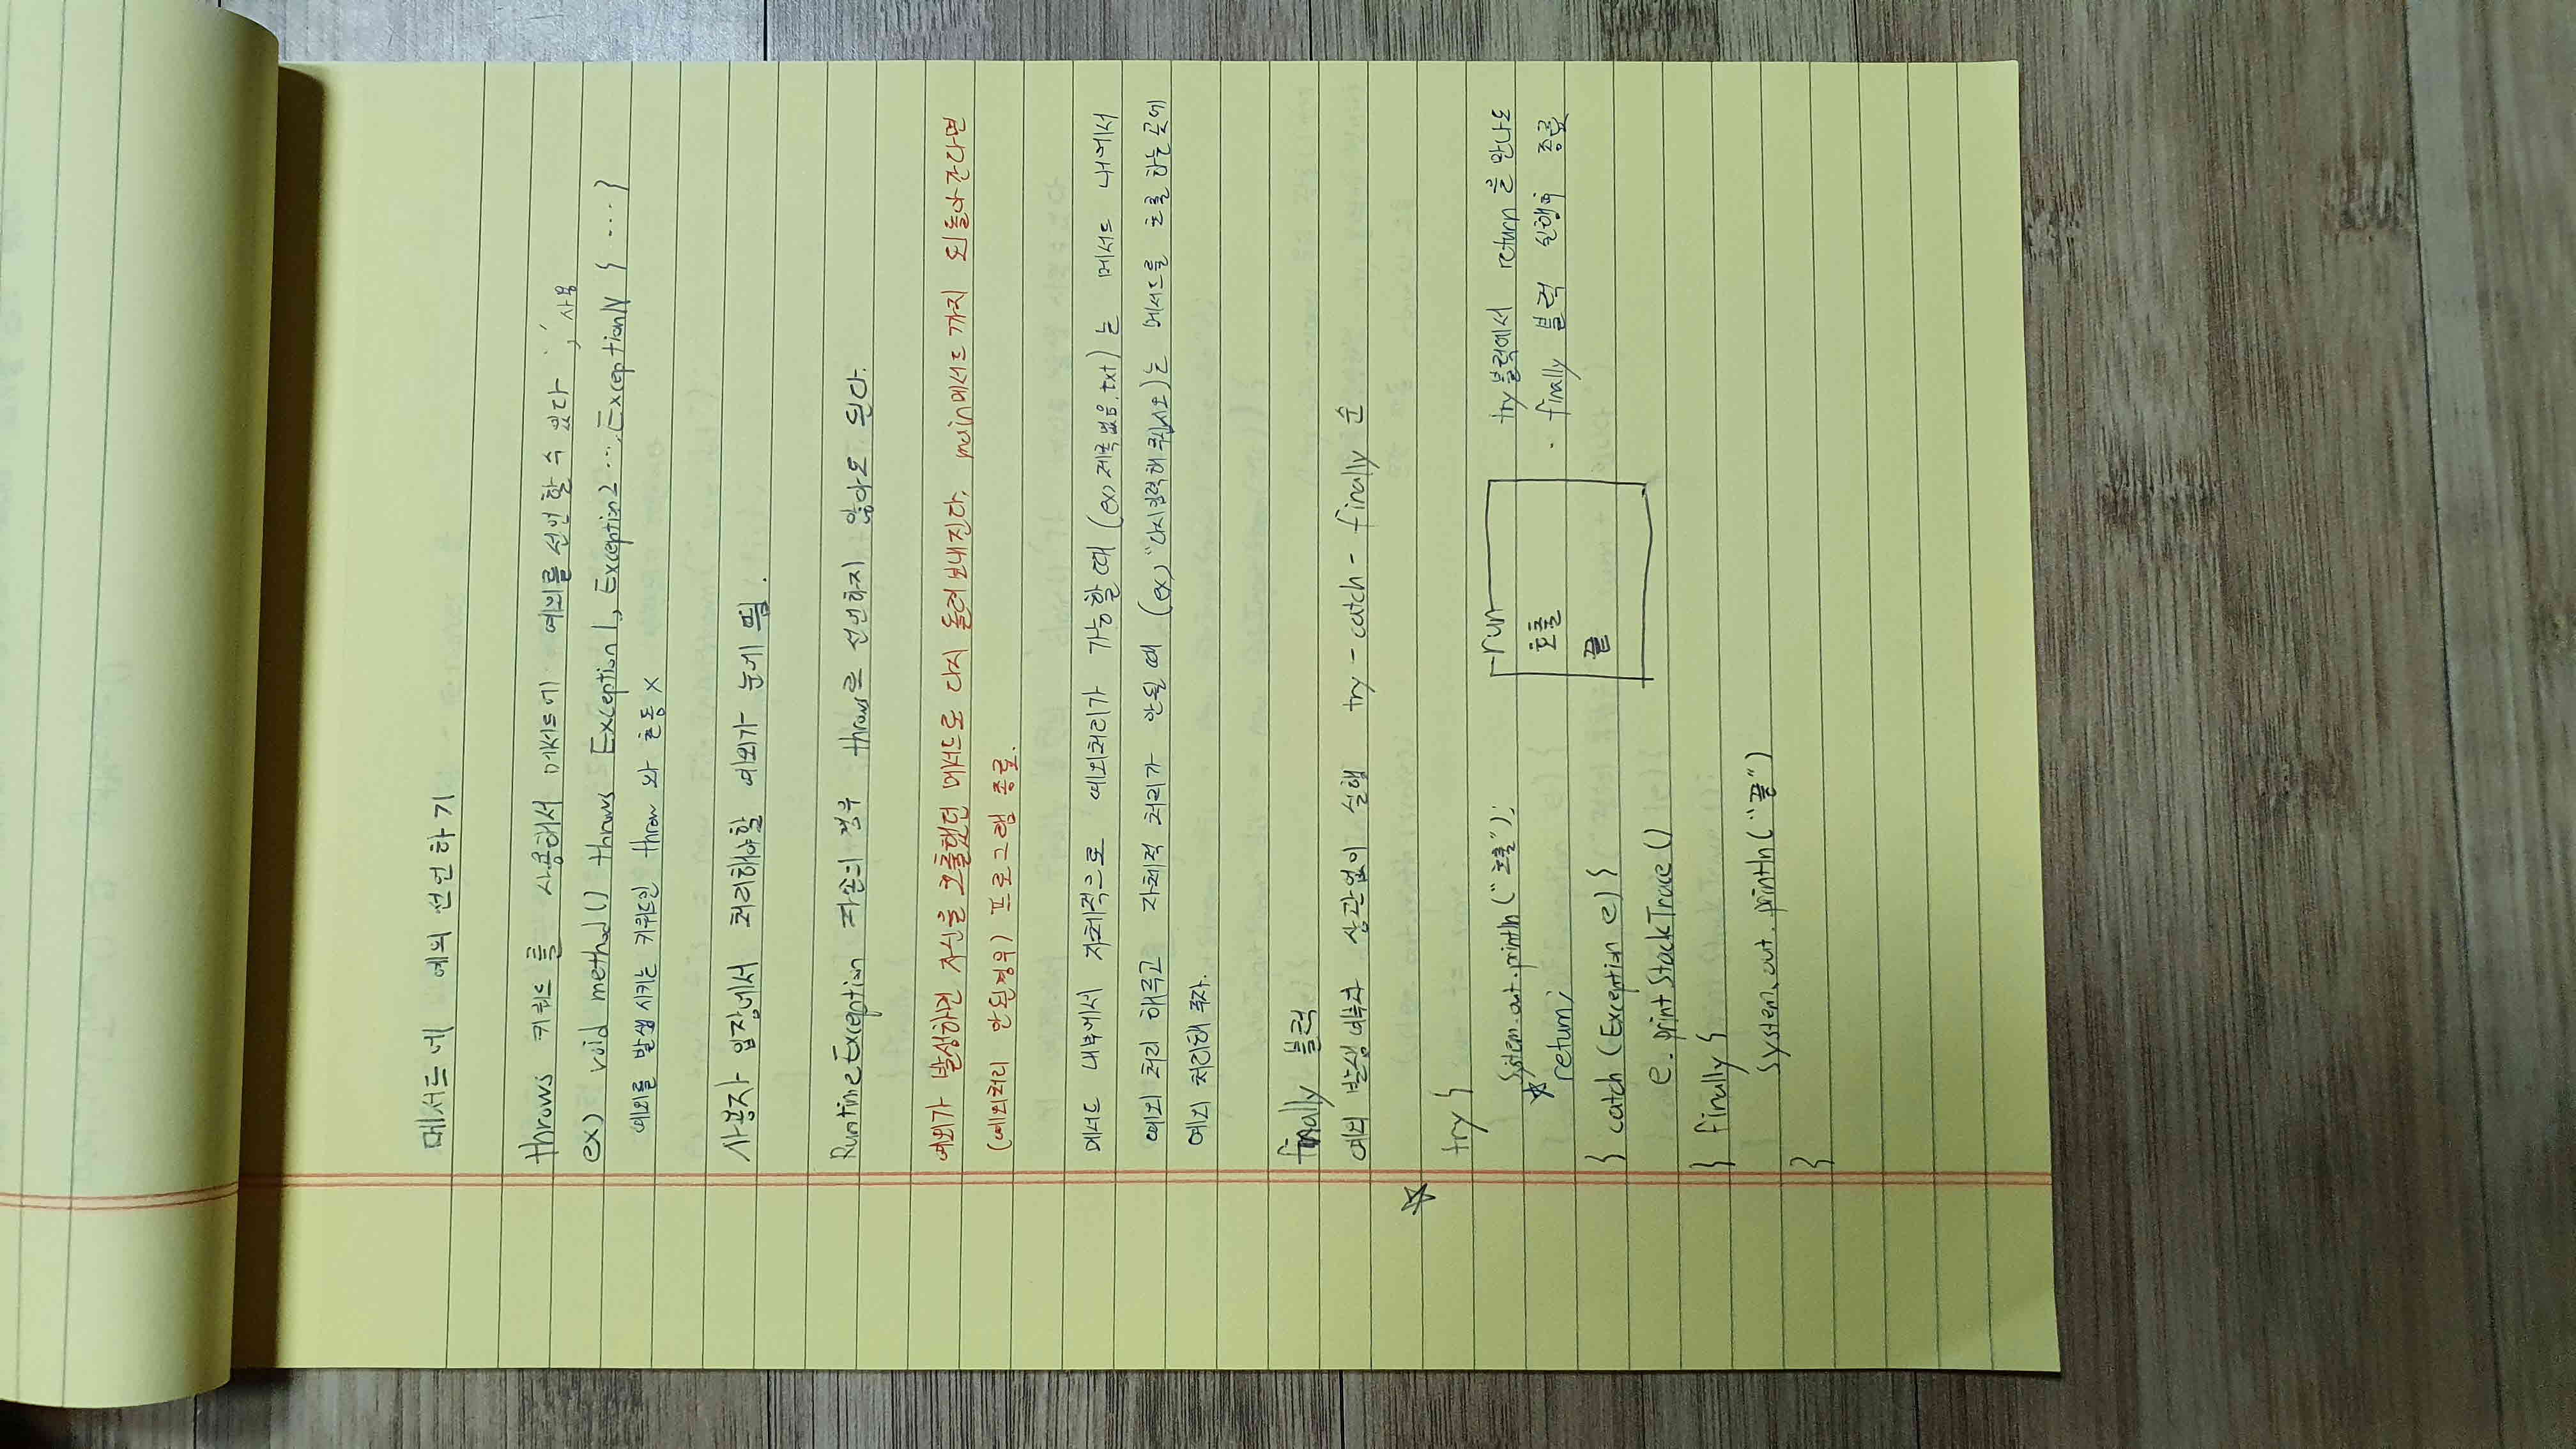 메서드에 예외 선언하기
throws 키워드를 사용해서 메서드에 예외를 선언할 수 있다 ',' 사용
ex) void method() throws Exception1, Exception2 ···, ExceptionN { ··· }
예외를 발생시키는 키워드인 throw 와 혼동 X
사용자 입장에서 처리해야할 예외가 눈에 띔.
RuntimeException 자손의 경우 throws로 선언하지 않아도 된다.
예외가 발생하면 자신을 호출했던 메서드로 다시 돌려보내진다. main메서드 까지 되돌아간다면
(예외처리 안된경우) 프로그램 종료.
메서드 내부에서 자체적으로 예외처리가 가능할 때 (ex) 제목없음.txt)는 메서드 내에서
예외 처리 해주고 자체적 처리가 안될 때 (ex) "다시입력해 주십시오)는 메서드를 호출 하는 곳에
예외 처리해 주자.
finally 블럭
예외 발생 여부와 상관없이 실행 try - catch - finally 순
☆
try {
System.out.println("호출"); run try블럭에서 return을 만나도
☆ return; 호출 · finally 블럭 실행후 종료
} catch (Exception e) { 끝
e. printStackTrace ()
} finally {
system.out.println("끝")
}